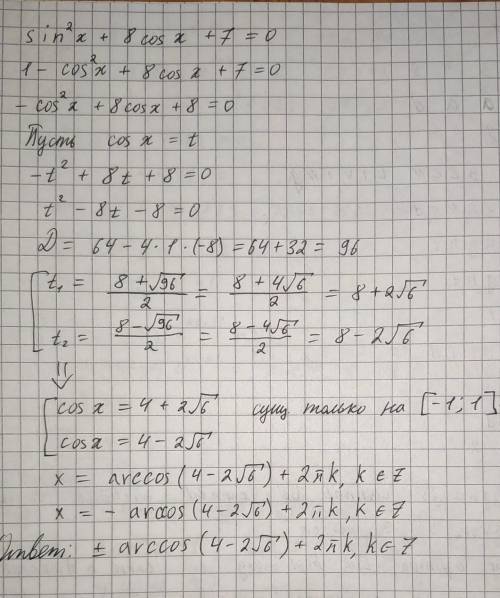 sin²x + 8cos x + 7 = 0
1 - cos²x + 8cos x + 7 = 0
- cos²x + 8cos x + 8 = 0
Пусть cos x = t
-t² + 8t + 8 = 0
t² - 8t - 8 = 0
D = 64 - 4·1·(-8) = 64 + 32 = 96
t₁ = (8 + √96)/2 = (8 + 4√6)/2 = 8 + 2√6
t₂ = (8 - √96)/2 = (8 - 4√6)/2 = 8 - 2√6
⇓
cos x = 4 + 2√6 сущ только на [-1; 1]
cos x = 4 - 2√6
x = arccos(4 - 2√6) + 2πk, k ∈ Z
x = - arccos(4 - 2√6) + 2πk, k ∈ Z
Ответ: ± arccos(4 - 2√6) + 2πk, k ∈ Z